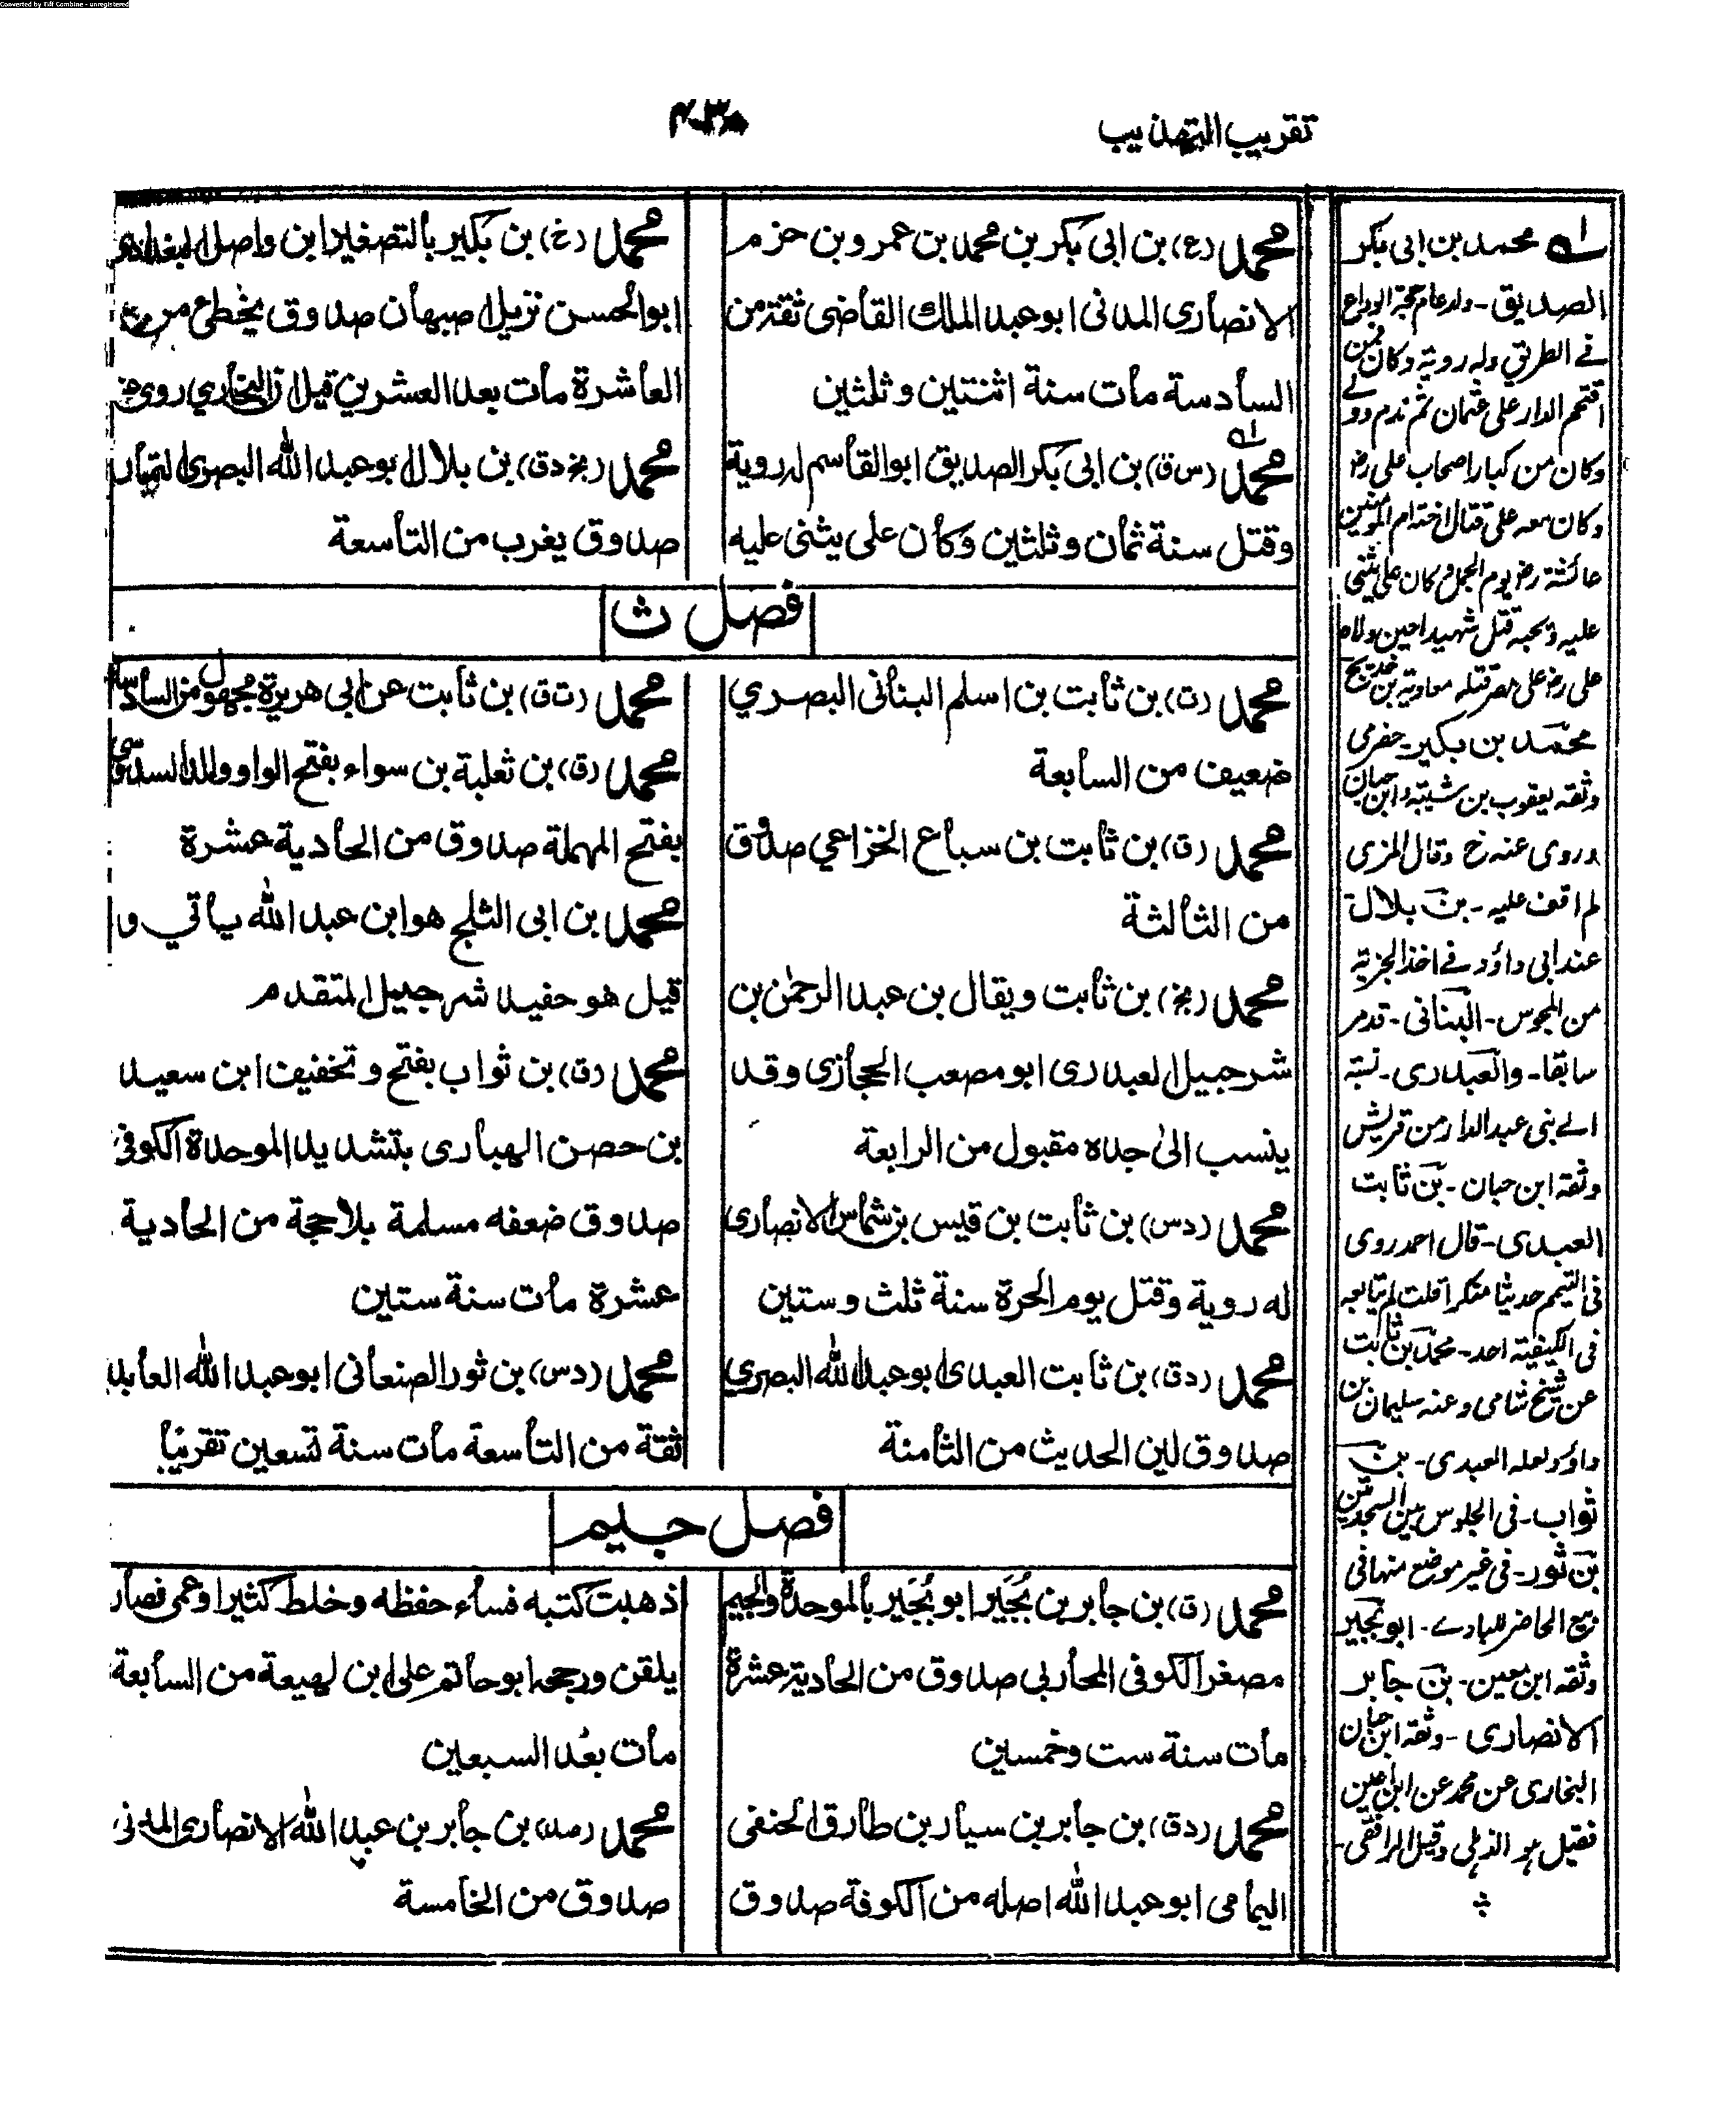 Converted by Tiff Combine - unregistered
تقريب التهذيب
٤٣٠
محمد (ع) بن ابى بكر بن محمد بن عمرو بن حزم
الانصارى المدنى ابو عبد الملك القاضى ثقة من
السادسة مات سنة اثنتين وثلثين
محمد (س ق) بن ابى بكر الصديق ابو القاسم له روية
وقتل سنة ثمان وثلثين وكان على يثنى عليه
محمد (خ) بن بكير بالتصغير ابن واصل البغدادى
ابو الحسن نزيل اصبهان صدوق يخطئ من
العاشرة مات بعد العشرين قيل ان البخاري روى عنه
محمد (بخ د ق) بن بلال ابو عبد الله البصرى التمار
صدوق يغرب من التاسعة
فصل ث
محمد (ت) بن ثابت بن اسلم البنانى البصري
ضعيف من السابعة
محمد (ق) بن ثابت بن سباع الخزاعي صدوق
من الثالثة
محمد (بخ) بن ثابت ويقال بن عبد الرحمٰن بن
شرحبيل العبدرى ابو مصعب الحجازي وقد
ينسب الىٰ جده مقبول من الرابعة
محمد (د س) بن ثابت بن قيس بن شماس الانصارى
له روية وقتل يوم الحرة سنة ثلث وستين
محمد (د ق) بن ثابت العبدى ابو عبد الله البصري
صدوق لين الحديث من الثامنة
محمد (ت ق) بن ثابت عن ابى هريرة مجهول من السادسة
محمد (ق) بن ثعلبة بن سواء بفتح الواو والمد السدوسى
بفتح المهملة صدوق من الحادية عشرة
محمد بن ابى الثلج هو ابن عبد الله يأتي و
قيل هو حفيد شرحبيل المتقدم
محمد (ق) بن ثواب بفتح وتخفيف ابن سعيد
بن حصن الهبارى بتشديد الموحدة الكوفي
صدوق ضعفه مسلمة بلا حجة من الحادية
عشرة مات سنة ستين
محمد (د س) بن ثور الصنعانى ابو عبد الله العابد
ثقة من التاسعة مات سنة تسعين تقريبًا
فصل جيم
محمد (ق) بن جابر بن بُجَير ابو بُجَير بالموحدة والجيم
مصغر الكوفى المحاربى صدوق من الحادية عشرة
مات سنة ست وخمسين
محمد (د ق) بن جابر بن سيار بن طارق الحنفى
اليمامى ابو عبد الله اصله من الكوفة صدوق
ذهبت كتبه فساء حفظه وخلط كثيرا وعمى فصار
يلقن ورجحه ابو حاتم على ابن لهيعة من السابعة
مات بعد السبعين
محمد (صد) بن جابر بن عبد الله الانصارى المدنى
صدوق من الخامسة
له محمد بن ابى بكر
الصديق - ولد عام حجة الوداع
فے الطريق وله روية وكان فمن
اقتحم الدار على عثمان ثم ندم
وكان من كبار اصحاب على رض
وكان معه على قتال ام المؤمنين
عائشة رض يوم الجمل وكان على يثنى
عليه ويحبه قتل شهيدا حين ولاه
على رض على مصر قتله معاوية بن خديج
محمد بن بكير - حضرمى
وثقه يعقوب بن شيبة وابن حبان
وروى عنه خ وقال المزى
لم اقف عليه - بن بلال
عند ابى داؤد فے اخذ الجزية
من المجوس - البنانى - قدم
سابقا - والعبدرى - نسبة
الے بنى عبد الدار من قريش
وثقه ابن حبان - بن ثابت
العبدى - قال احمد روى
فى التيمم حديثا منكرا قلت لم يتابعه
فى الكيفية احد - محمد بن ثابت
عن شيخ شامى وعنه سليمان بن
داؤد ولعله العبدى - بن
ثواب - فى الجلوس بين السجدتين
بن ثور - فى غير موضع منها فى
بيع الحاضر للبادے - ابو بجير
وثقه ابن معين - بن جابر
الانصارى - وثقه ابن حبان
البخارى عن محمد عن ابن اعين
فقيل هو الذهلى وقيل الرافقى -